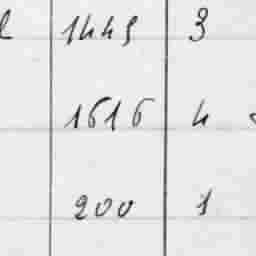 1449 3
1616 4
200 1